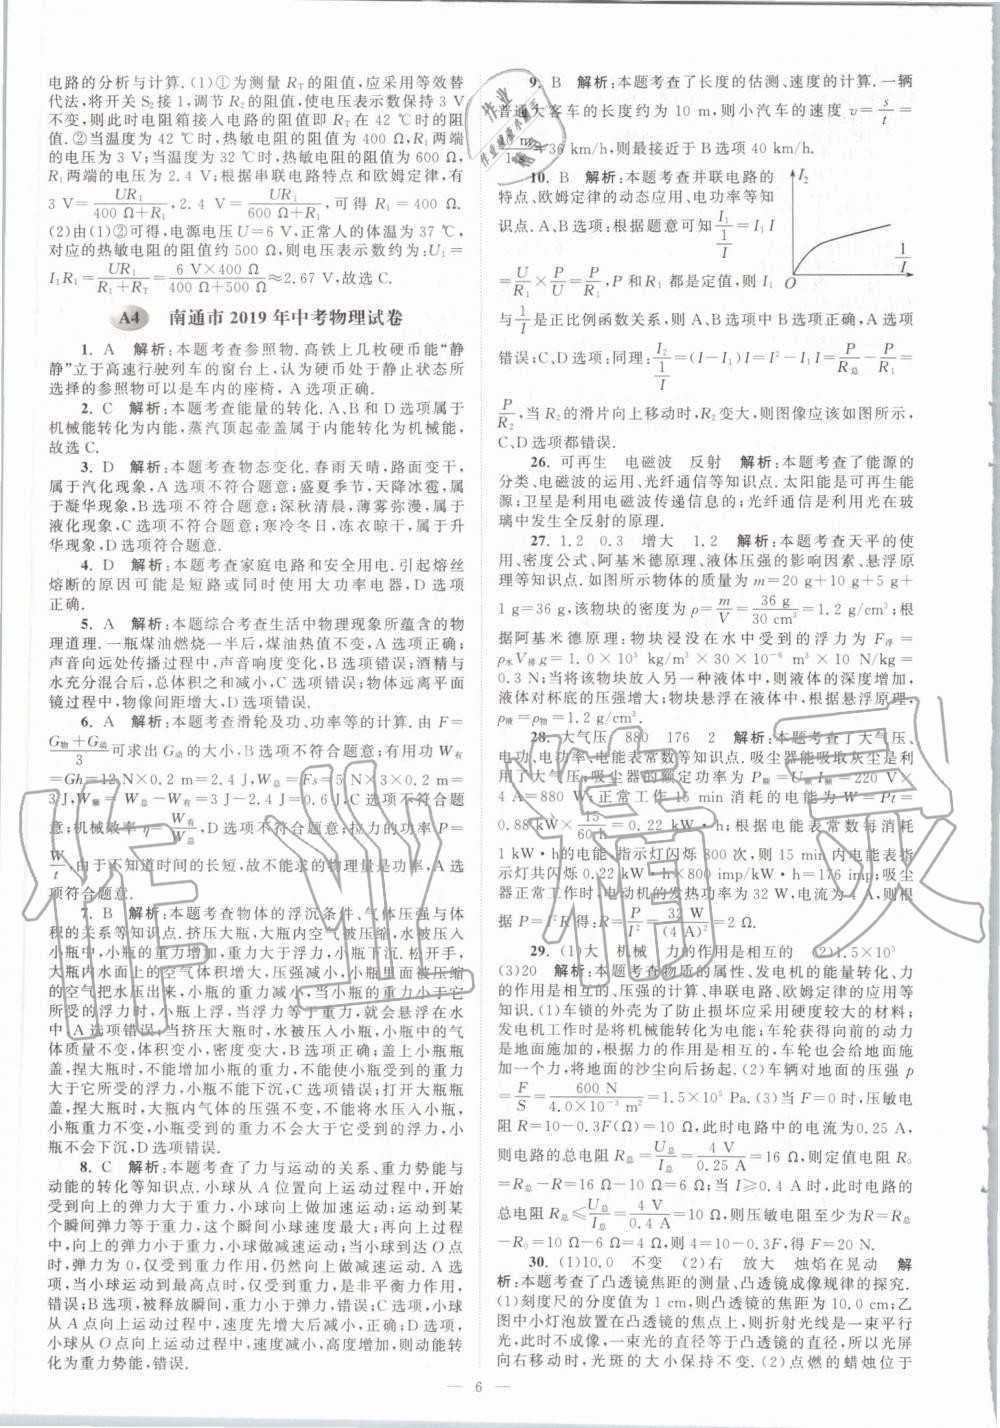 电路的分析与计算.(1)①为测量 R_T 的阻值,应采用等效替
代法,将开关 S₂ 接 1,调节 R₂ 的阻值,使电压表示数保持 3 V
不变,则此时电阻箱接入电路的阻值即 R_T 在 42 ℃时的阻
值.②当温度为 42 ℃时,热敏电阻的阻值为 400 Ω,R₁ 两端
的电压为 3 V;当温度为 32 ℃时,热敏电阻的阻值为 600 Ω,
R₁ 两端的电压为 2.4 V;根据串联电路特点和欧姆定律,有
3 V=UR₁/(400 Ω+R₁),2.4 V=UR₁/(600 Ω+R₁),可得 R₁=400 Ω.
(2)由(1)②可得,电源电压 U=6 V,正常人的体温为 37 ℃,
对应的热敏电阻的阻值约 500 Ω,则电压表示数约为:U₁=
I₁R₁=UR₁/(R₁+R_T)=6 V×400 Ω/(400 Ω+500 Ω)≈2.67 V,故选 C.
A4 南通市 2019 年中考物理试卷
1. A 解析:本题考查参照物.高铁上几枚硬币能“静
静”立于高速行驶列车的窗台上,认为硬币处于静止状态所
选择的参照物可以是车内的座椅,A 选项正确.
2. C 解析:本题考查能量的转化.A、B 和 D 选项属于
机械能转化为内能,蒸汽顶起壶盖属于内能转化为机械能,
故选 C.
3. D 解析:本题考查物态变化.春雨天晴,路面变干,
属于汽化现象,A 选项不符合题意;盛夏季节,天降冰雹,属
于凝华现象,B 选项不符合题意;深秋清晨,薄雾弥漫,属于
液化现象,C 选项不符合题意;寒冷冬日,冻衣晾干,属于升
华现象,D 选项符合题意.
4. D 解析:本题考查家庭电路和安全用电.引起熔丝
熔断的原因可能是短路或同时使用大功率电器,D 选项
正确.
5. A 解析:本题综合考查生活中物理现象所蕴含的物
理道理.一瓶煤油燃烧一半后,煤油热值不变,A 选项正确;
声音向远处传播过程中,音调不变,B 选项错误;酒精与
水充分混合后,总体积之和减小,C 选项错误;物体远离平面
镜过程中,物像间距增大,D 选项错误.
6. A 解析:本题考查滑轮及功、功率等的计算.由 F=
(G物+G动)/3 可求出 G动 的大小,B 选项不符合题意;有用功 W有
=Gh=12 N×0.2 m=2.4 J,W总=Fs=5 N×3×0.2 m=
3 J,W额=W总-W有=3 J-2.4 J=0.6 J,C 选项不符合题
意;机械效率 η=W有/W总,D 选项不符合题意;拉力的功率 P=
W/t,由于不知道时间的长短,故不能求出物理量是功率,A 选
项符合题意.
7. B 解析:本题考查物体的浮沉条件、气体压强与体
积的关系等知识点.挤压大瓶,大瓶内空气被压缩,水被压
入小瓶中,小瓶的重力增加,重力大于浮力,小瓶下沉.松开手,
大瓶内水面上的空气体积变大,压强减小,小瓶里面被压缩
的空气把水压出来,小瓶的重力减小,当小瓶的重力小于它
所受的浮力时,小瓶上浮,当浮力等于重力,就会悬浮在水
中.A 选项错误;当挤压大瓶时,水被压入小瓶,小瓶中的气
体质量不变,体积变小,密度变大,B 选项正确;盖上小瓶瓶
盖,捏大瓶时,不能增加小瓶的重力,不能使小瓶受到的重力
大于它所受的浮力,小瓶不能下沉,C 选项错误;打开大瓶瓶
盖,捏大瓶时,大瓶内气体的压强不变,不能将水压入小瓶,
小瓶重力不变,小瓶受到的重力不能大于它所受的浮力,小
瓶不会下沉,D 选项错误.
8. C 解析:本题考查了力与运动的关系、重力势能与
动能的转化等知识点.小球从 A 位置向上运动过程中,开始
受到向上的弹力大于重力,小球向上做加速运动;运动到某
个瞬间弹力等于重力,这个瞬间小球速度最大;再向上过程
中,向上的弹力小于重力,小球做减速运动;小球到达 O 点
时,弹力为 0,仅受到重力,仍然向上做减速运动.A 选
项:当小球运动到最高点时,仅受重力的作用,是非平衡力作用,
错误;B 选项,被释放瞬间,重力小于弹力,错误;C 选项,小球
从 A 点向上运动过程中,速度先增大后减小,正确;D 选项,
小球从 O 点向上运动过程中,速度减小,高度增加,动能转
化为重力势能,错误.
9. B 解析:本题考查了长度的估测、速度的计算.一辆
普通大客车的长度约为 10 m,则小汽车的速度 v=s/t=
×36 km/h,则最接近于 B 选项 40 km/h.
10. B 解析:本题考查并联电路的
特点、欧姆定律的动态应用、电功率等知
识点.A、B 选项:根据题意可知 I₁/(1/I)=I₁I
=U/R₁×P/U=P/R₁,P 和 R₁ 都是定值,则 I₁
I₂
1/I
O
与 1/I 是正比例函数关系,则 A 选项错误,B 选项正确,A 选项
错误;C、D 选项:同理:I₂/(1/I)=(I-I₁)I=I²-I₁I=P/R总-P/R₁=
P/R₂,当 R₂ 的滑片向上移动时,R₂ 变大,则图像应该如图所示,
C、D 选项都错误.
26. 可再生 电磁波 反射 解析:本题考查了能源的
分类、电磁波的运用、光纤通信等知识点.太阳能是可再生能
源;卫星是利用电磁波传递信息的;光纤通信是利用光在玻
璃中发生全反射的原理.
27. 1.2 0.3 增大 1.2 解析:本题考查天平的使
用、密度公式、阿基米德原理、液体压强的影响因素、悬浮原
理等知识点.如图所示物体的质量为 m=20 g+10 g+5 g+
1 g=36 g,该物块的密度为 ρ=m/V=36 g/30 cm³=1.2 g/cm³;根
据阿基米德原理:物块浸没在水中受到的浮力为 F浮=
ρ水V排g=1.0×10³ kg/m³×30×10⁻⁶ m³×10 N/kg=
0.3 N;当将该物块放入另一种液体中,则液体的深度增加,
液体对杯底的压强增大;物块悬浮在液体中,根据悬浮原理,
ρ液=ρ物=1.2 g/cm³.
28. 大气压 880 176 2 解析:本题考查了大气压、
电功、电功率、电能表常数等知识点.吸尘器能吸取灰尘是利
用了大气压;吸尘器的额定功率为 P额=U额I额=220 V×
4 A=880 W;正常工作 15 min 消耗的电能为 W=Pt=
0.88 kW×15/60 h=0.22 kW·h;根据电能表常数每消耗
1 kW·h的电能,指示灯闪烁 800 次,则 15 min 内电能表指
示灯共闪烁 0.22 kW·h×800 imp/kW·h=176 imp;吸尘
器正常工作时,电动机的发热功率为 32 W,电流为 4 A,则根
据 P=I²R 得:R=P/I²=32 W/(4 A)²=2 Ω.
29. (1)大 机械 力的作用是相互的 (2)1.5×10⁵
(3)20 解析:本题考查物质的属性、发电机的能量转化、力
的作用是相互的、压强的计算、串联电路、欧姆定律的应用等
知识.(1)车锁的外壳为了防止损坏应采用硬度较大的材料;
发电机工作时是将机械能转化为电能;车轮获得向前的动力
是地面施加的,根据力的作用是相互的,车轮也会对地面施
加一个力,将地面的沙尘向后扬起.(2)车辆对地面的压强 p
=F/S=600 N/(4.0×10⁻³ m²)=1.5×10⁵ Pa.(3)当 F=0 时,压敏电
阻 R=10-0.3F(Ω)=10 Ω,此时电路中的电流为0.25 A,
则电路的总电阻 R总=U总/I总=4 V/0.25 A=16 Ω,则定值电阻 R₀
=R总-R=16 Ω-10 Ω=6 Ω;当 I≥0.4 A 时,此时电路的
总电阻 R总≤U总/I总=4 V/0.4 A=10 Ω,则压敏电阻至少为 R=R总
-R₀=10 Ω-6 Ω=4 Ω,则 4=10-0.3F,得 F=20 N.
30. (1)10.0 不变 (2)右 放大 烛焰在晃动 解
析:本题考查了凸透镜焦距的测量、凸透镜成像规律的探究.
(1)刻度尺的分度值为 1 cm,则凸透镜的焦距为 10.0 cm;乙
图中小灯泡放置在凸透镜的焦点上,则折射光线是一束平行
光,此时不成像,一束光的直径等于凸透镜的直径,所以光屏
向右移动时,光斑的大小保持不变.(2)点燃的蜡烛位于
— 6 —
作业精灵